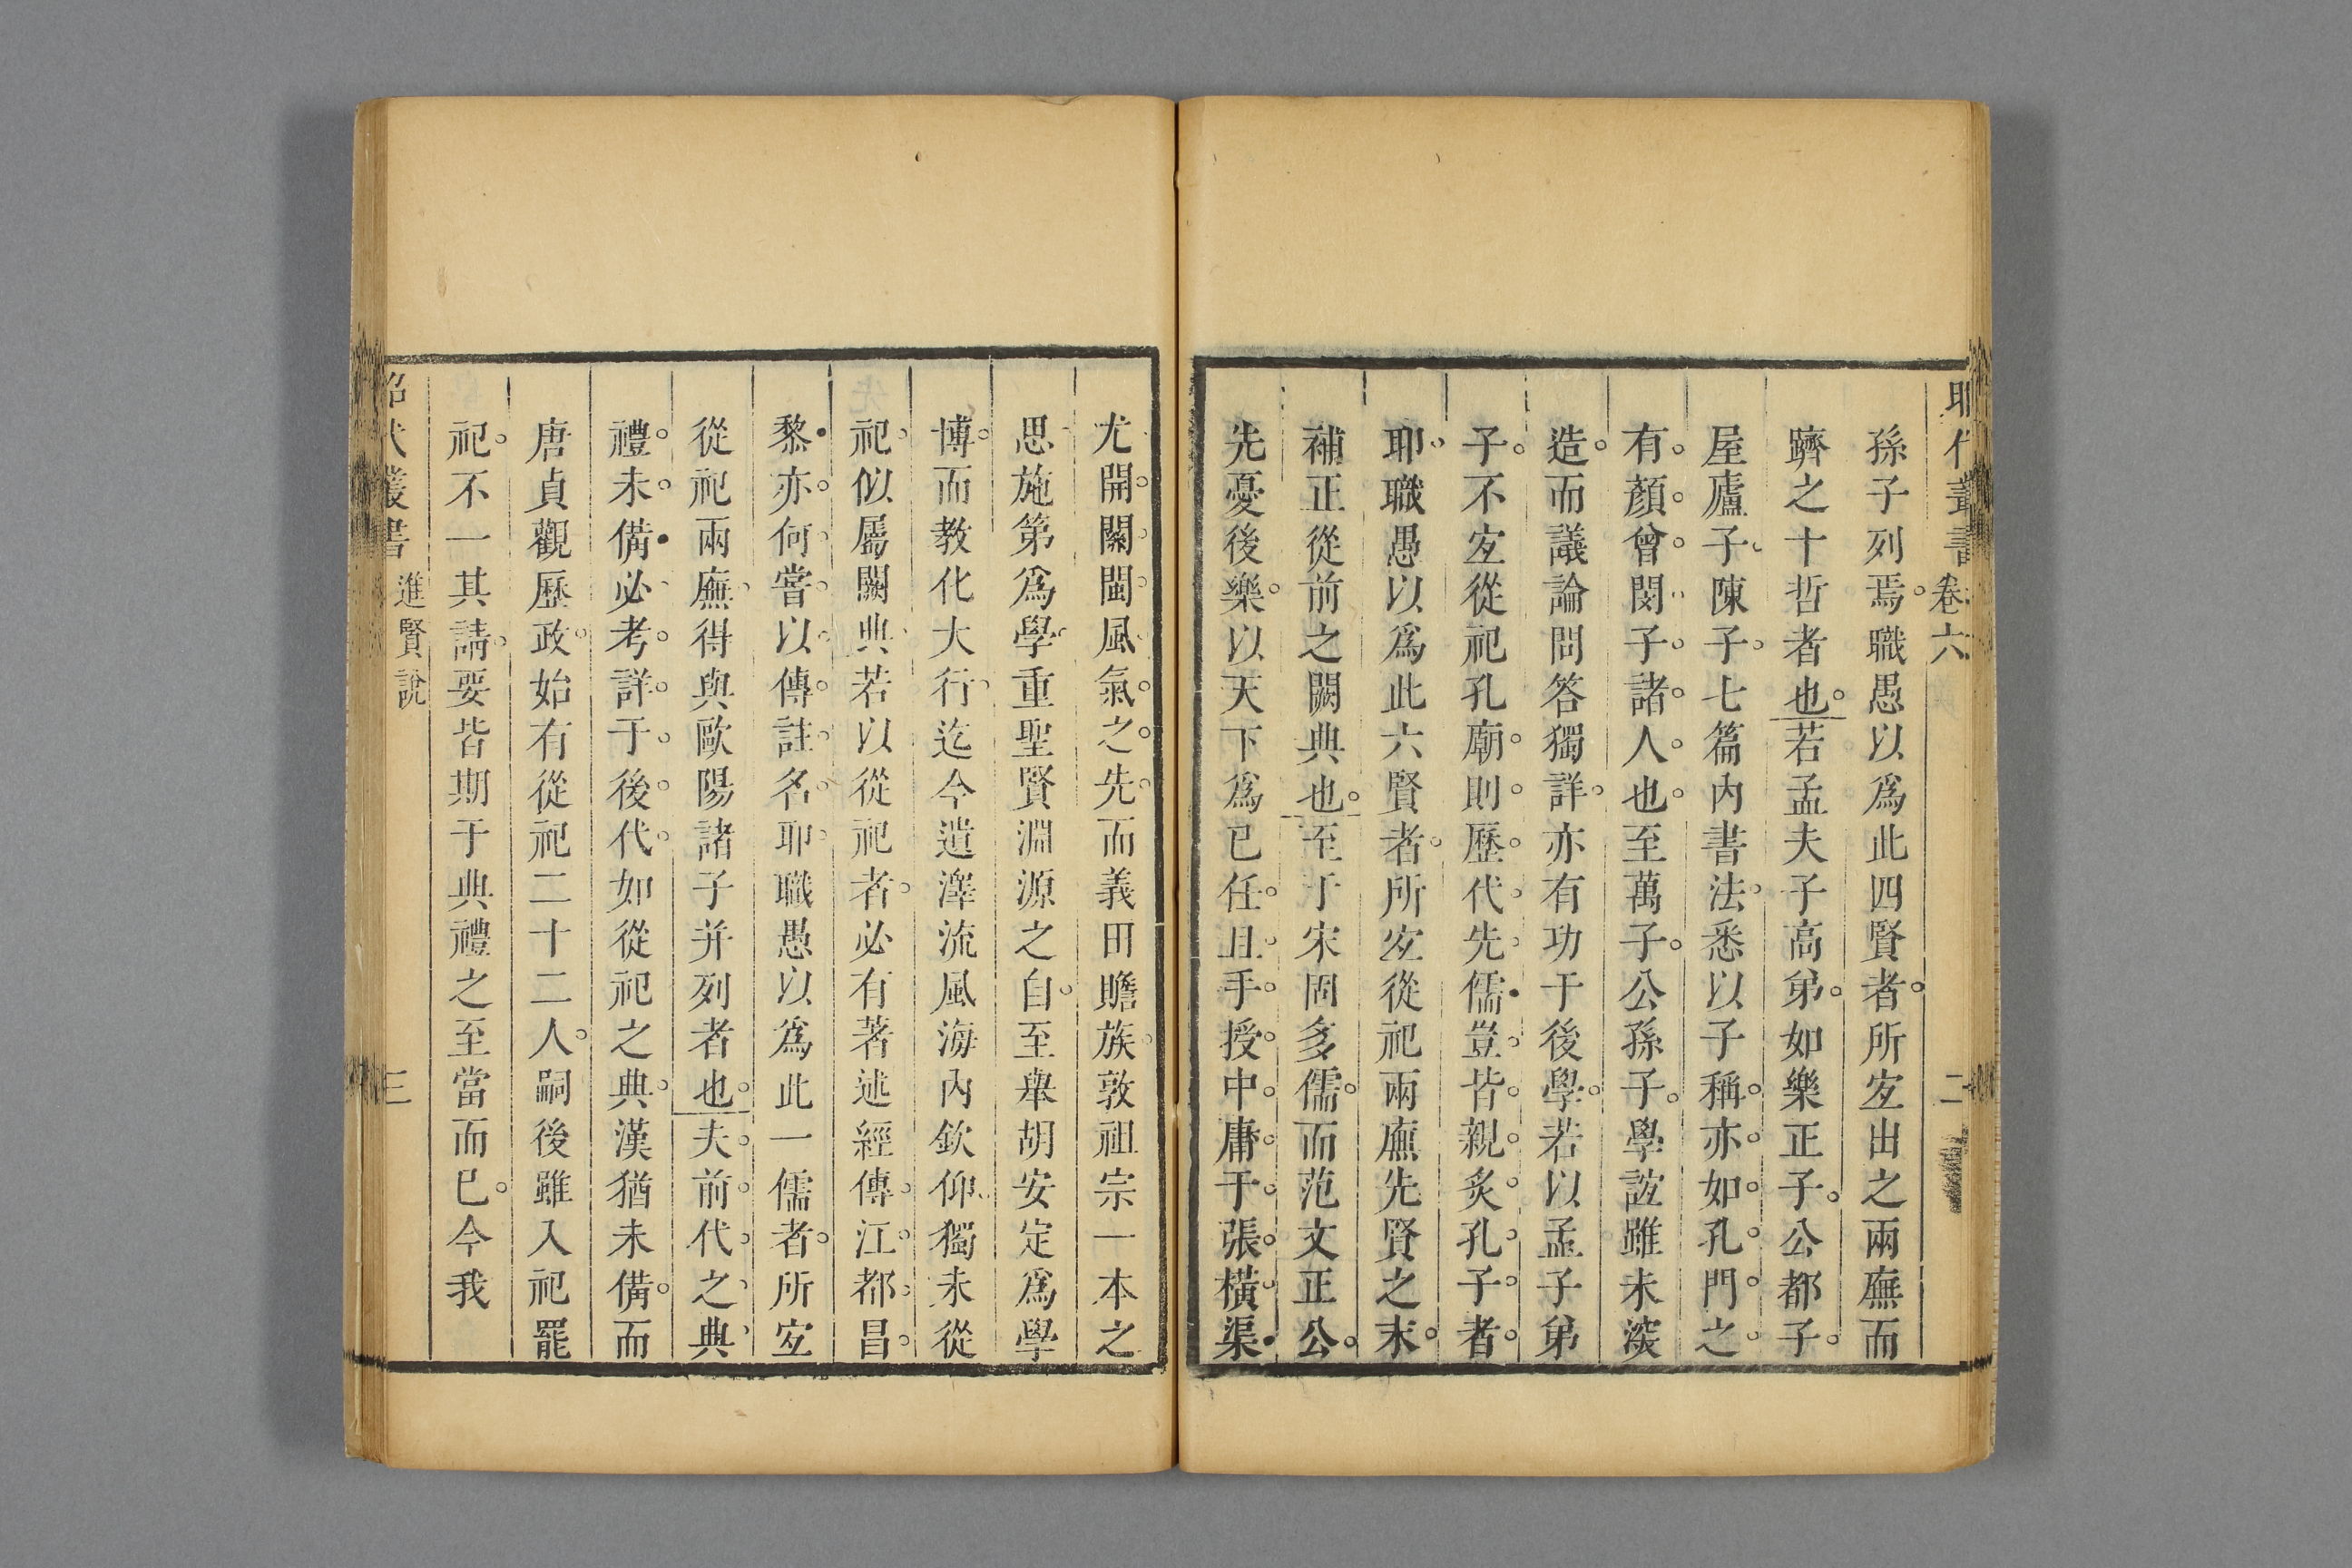 昭代叢書卷六 二
孫子列焉職愚以爲此四賢者所宐出之兩廡而
躋之十哲者也若孟夫子高弟如樂正子公都子
屋廬子陳子七篇內書法悉以子稱亦如孔門之
有顏曾閔子諸人也至萬子公孫子學誼雖未㴱
造而議論問答獨詳亦有功于後學若以孟子弟
子不宐從祀孔廟則歷代先儒豈皆親炙孔子者
耶職愚以爲此六賢者所宐從祀兩廡先賢之末
補正從前之闕典也至于宋固多儒而范文正公
先憂後樂以天下爲己任且手授中庸于張橫渠
尤開關閩風氣之先而義田贍族敦祖宗一本之
思施第爲學重聖賢淵源之自至舉胡安定爲學
博而教化大行迄今遺澤流風海內欽仰獨未從
祀似屬闕典若以從祀者必有著述經傳江都昌
黎亦何嘗以傳註名耶職愚以爲此一儒者所宐
從祀兩廡得與歐陽諸子并列者也夫前代之典
禮未備必考詳于後代如從祀之典漢猶未備而
唐貞觀歷政始有從祀二十二人嗣後雖入祀罷
祀不一其請要皆期于典禮之至當而已今我
昭代叢書 進賢說 三